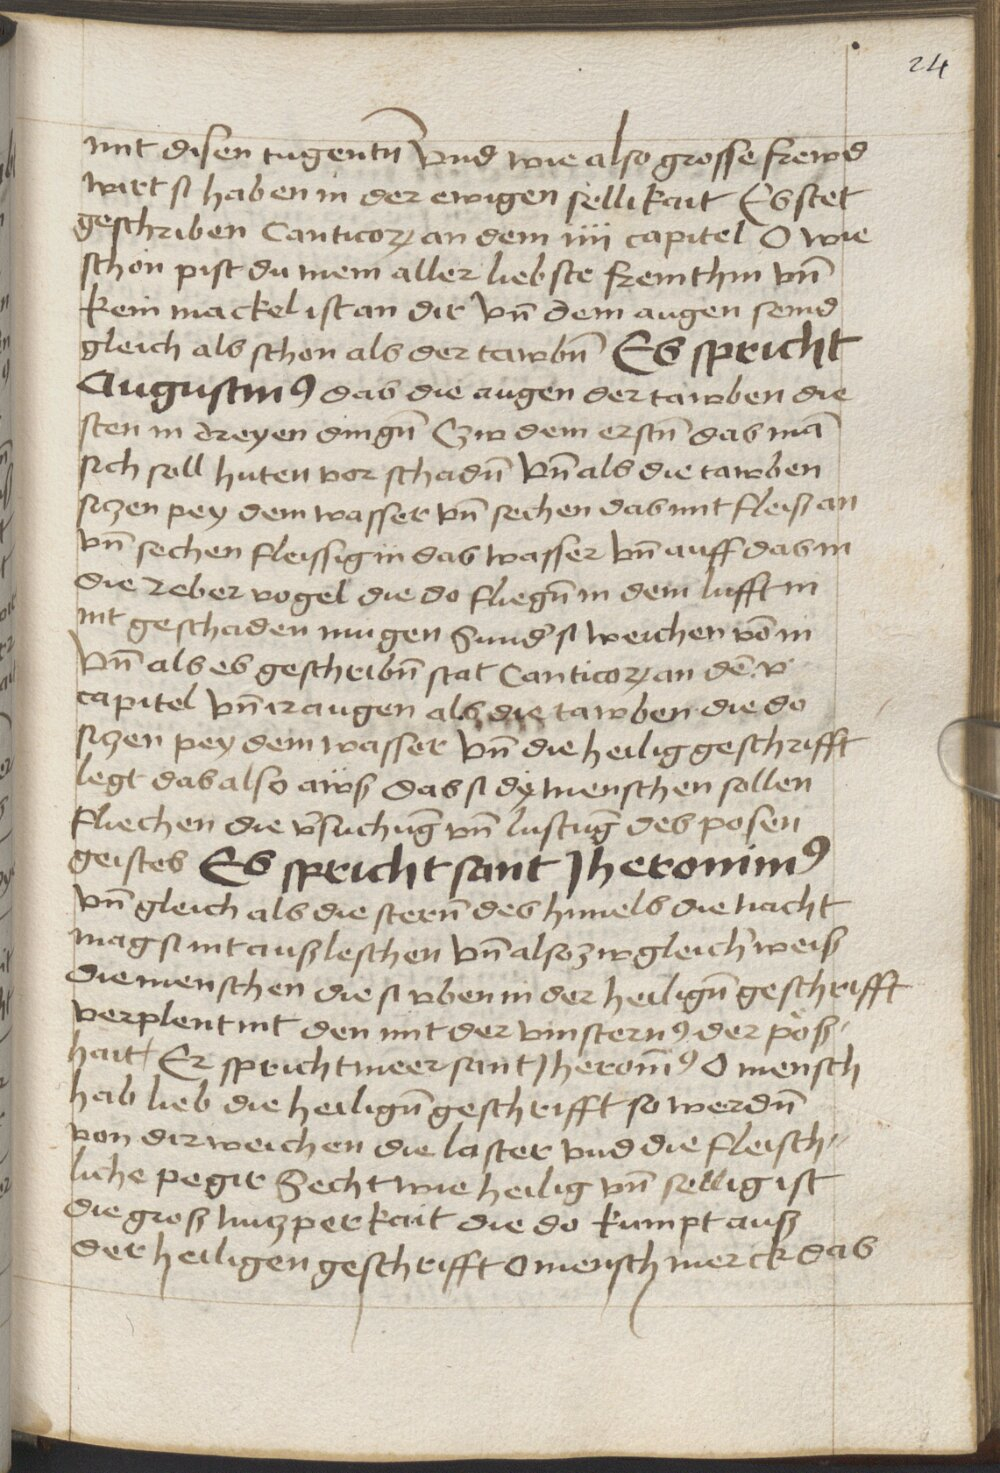 24
mit disen tugentn̄ Vnd wie also grosse frewd
wirt si haben in der ewigen sellikait Es stet
geschriben Canticoꝝ an dem iiij capitel O wie
schon pist du mein aller liebste frewnthin vn̄
kein mackel ist an dir vn̄ dein augen seind
gleich als schon als der tawbn̄ Es spricht
Augustinꝰ das die augen der tawben die
sten in dreyen dingn̄ Czw dem erstn̄ das mā
sich soll huten vor schadn̄ Vn̄ als die tawben
siczen pey dem wasser vn̄ sechen das mit fleisz an
vn̄ sechen fleissig in das wasser vn̄ auff das in
die reber vogel die do fliegn̄ in dem lufft in
nit geschaden mugen Sund' si weichen vō in
Vn̄ als es geschribn̄ stat Canticoꝝ an dē v
capitel vn̄ ir augen als die tawben die do
siczen pey dem wasser vn̄ die heilig geschrifft
legt das also awß das si dÿ menschen sollen
fliechen die v̄suchūg vn̄ lustūg des posen
geistes Es spricht sant Jheronimꝰ
vn̄ gleich als die stern̄ des himels die nacht
mag si nit außleschen vn̄ also zw gleich' weiß
die menschen die si vben in der heilign̄ geschrifft
verplent nit den mit der vinsternꝰ der pöß-
hait Er spricht meer sant Jheronīꝰ O mensch
hab lieb die heilign̄ geschrifft so werdn̄
von dir weichen die laster vnd die fleisch-
liche pegir Secht wie heilig vn̄ sellig ist
die groß nuczperkait die do kumpt auß
der heiligen geschrifft O mensch merck das